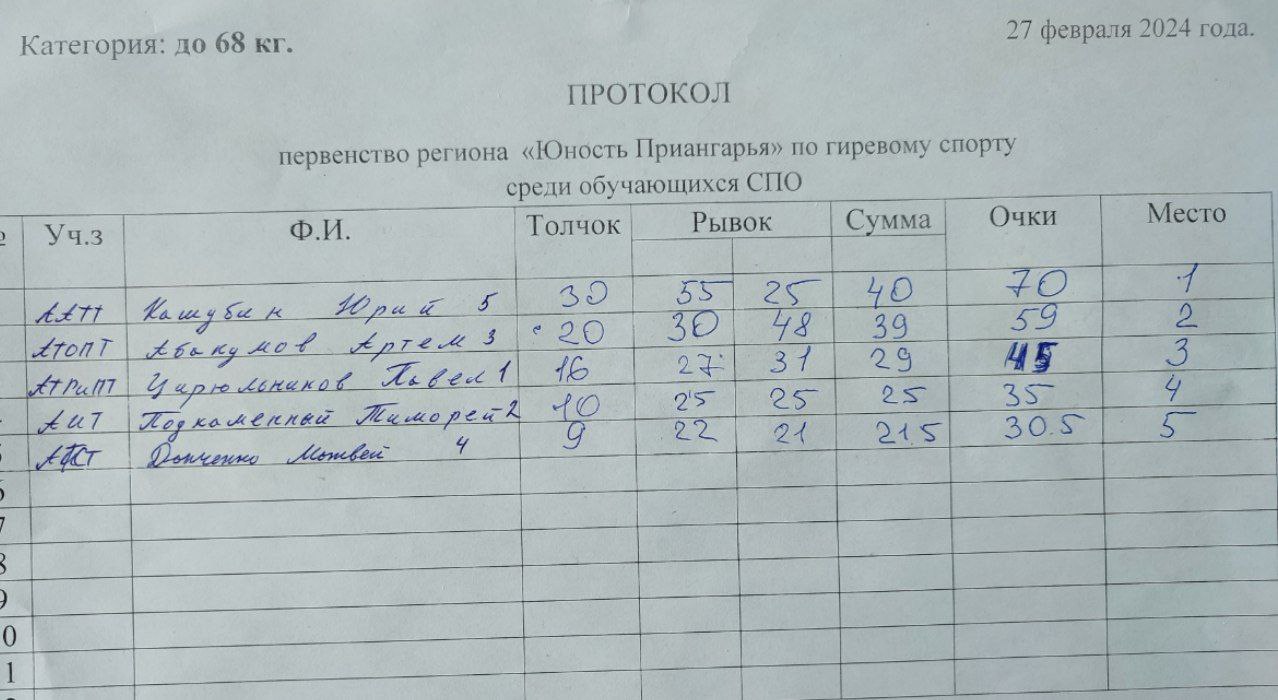 Категория: до 68 кг.
27 февраля 2024 года.
ПРОТОКОЛ
первенство региона «Юность Приангарья» по гиревому спорту
среди обучающихся СПО
Уч.з Ф.И. Толчок Рывок Сумма Очки Место
Кашубин Юрий 5 30 55 25 40 70 1
АТОПТ Абакумов Артем 3 20 30 48 39 59 2
АТРиПТ Цирюльников Павел 1 16 27 31 29 45 3
АИТ Подкаменный Тиморей 2 10 25 25 25 35 4
Донченко Матвей 4 9 22 21 21.5 30.5 5
6
7
8
9
0
1